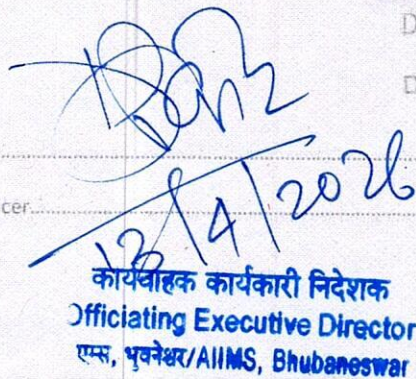 D
D
cer
13/4/2026
कार्यवाहक कार्यकारी निदेशक
Officiating Executive Director
एम्स, भुवनेश्वर/AIIMS, Bhubaneswar